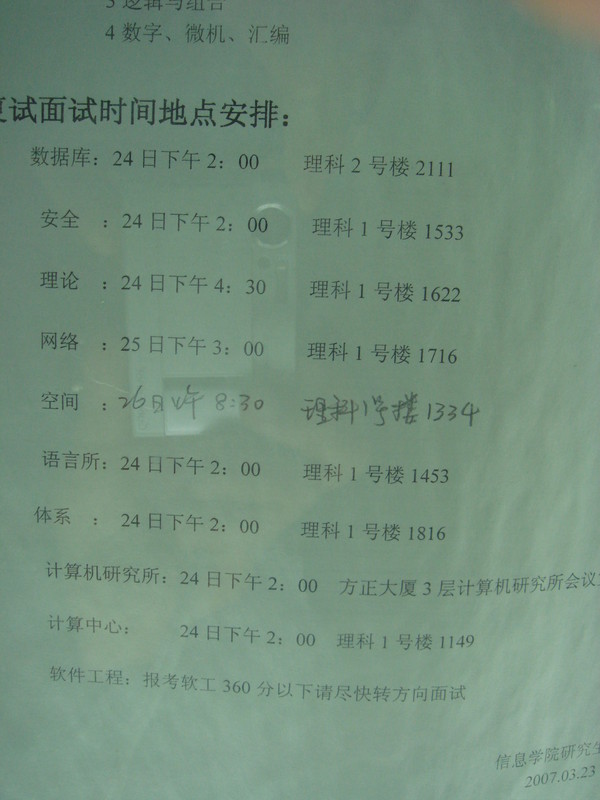 3 逻辑与组合
4 数字、微机、汇编
复试面试时间地点安排：
数据库：24 日下午 2：00 理科 2 号楼 2111
安全 ：24 日下午 2：00 理科 1 号楼 1533
理论 ：24 日下午 4：30 理科 1 号楼 1622
网络 ：25 日下午 3：00 理科 1 号楼 1716
空间 ：26日上午 8:30 理科1号楼1334
语言所：24 日下午 2：00 理科 1 号楼 1453
体系 ：24 日下午 2：00 理科 1 号楼 1816
计算机研究所：24 日下午 2：00 方正大厦 3 层计算机研究所会议
计算中心： 24 日下午 2：00 理科 1 号楼 1149
软件工程：报考软工 360 分以下请尽快转方向面试
信息学院研究生
2007.03.23